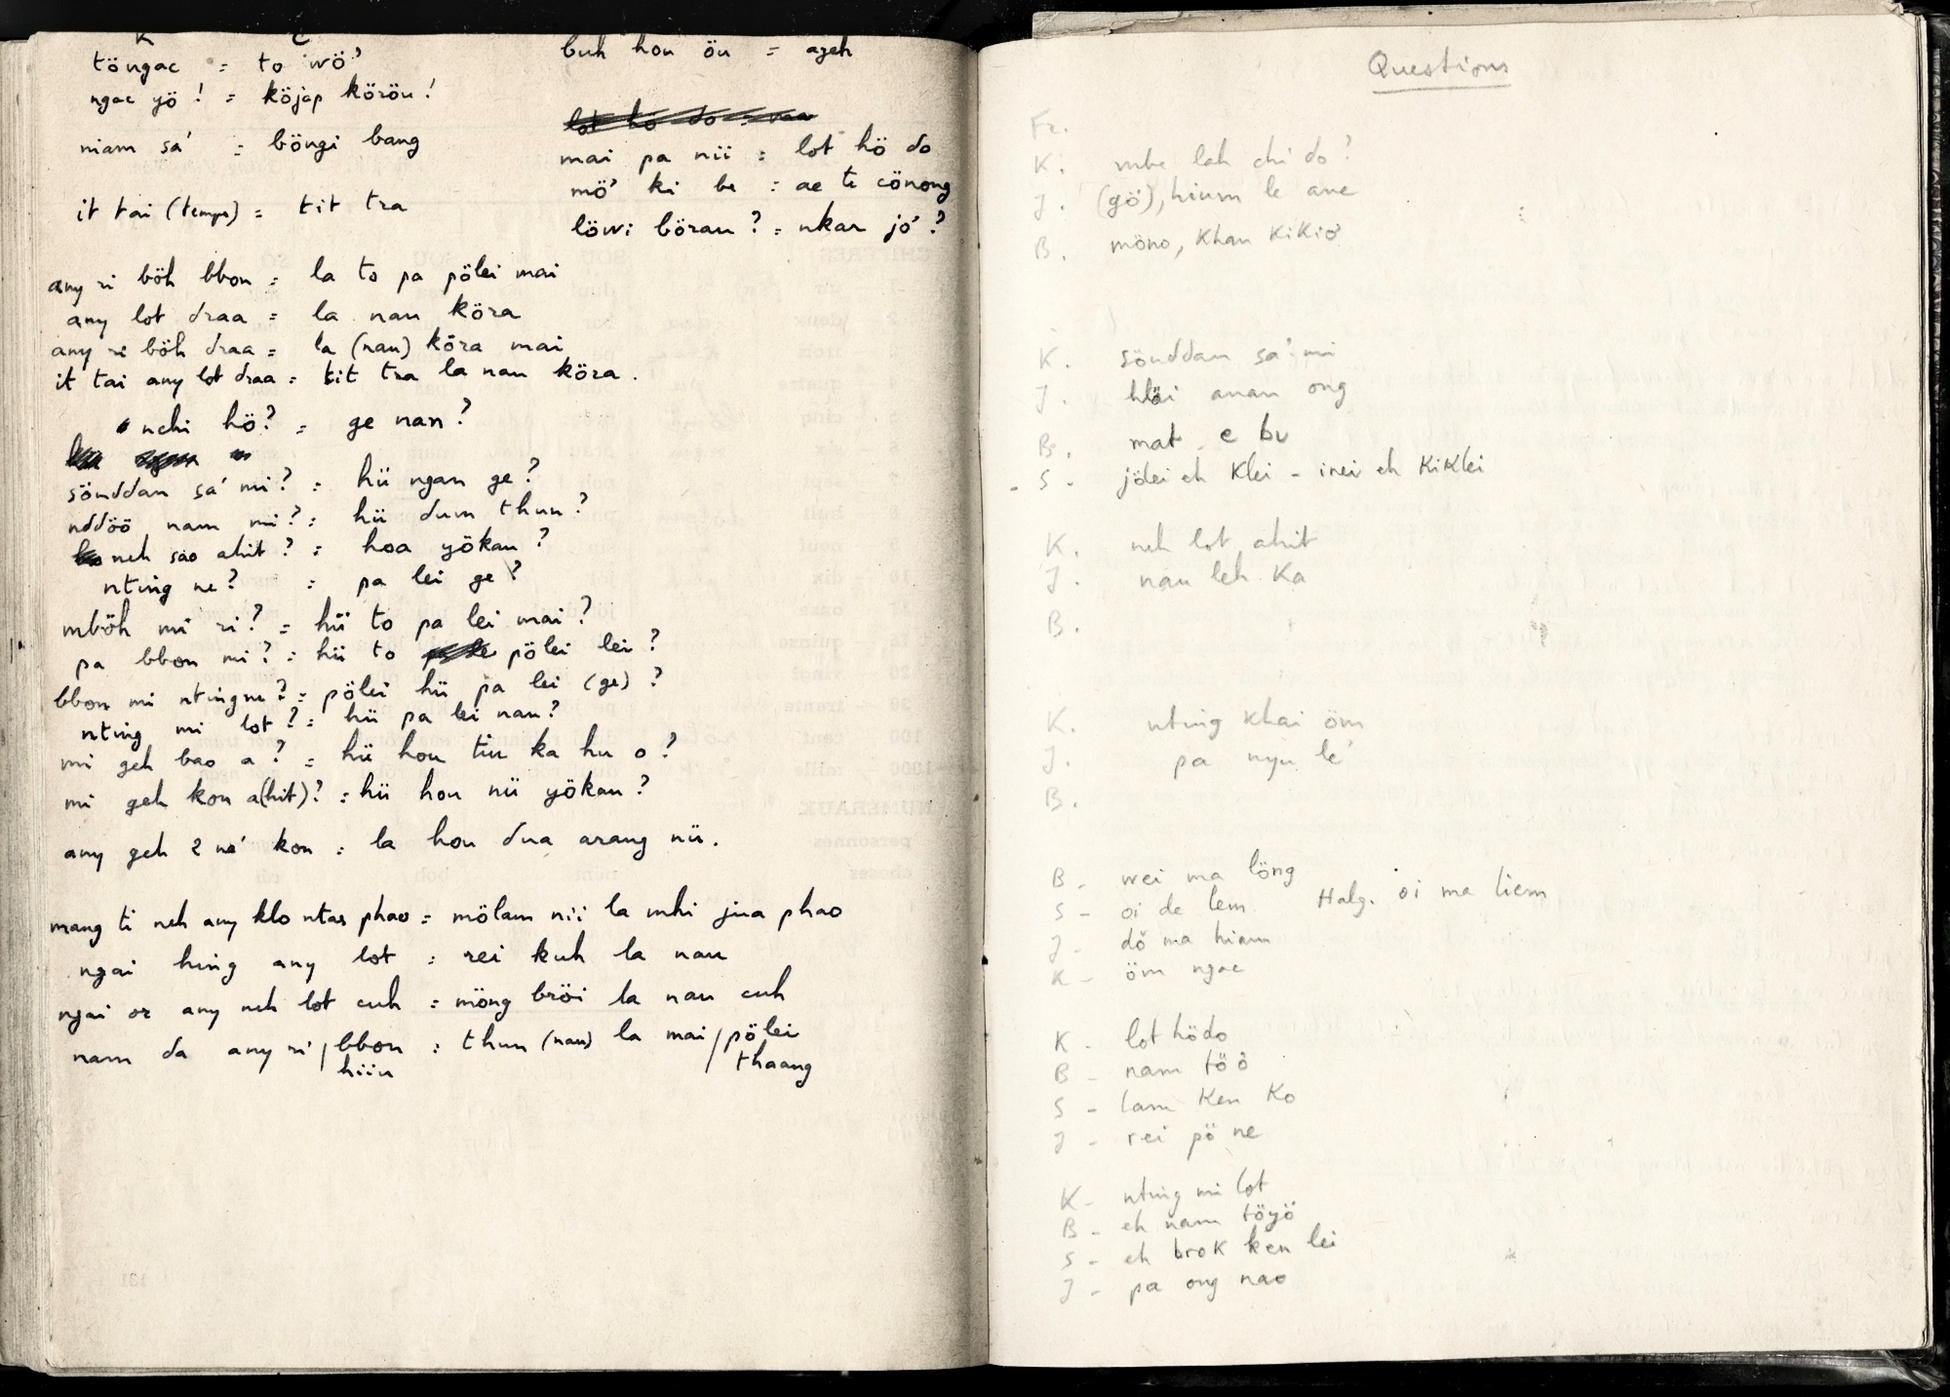 K C
töngac = to wö'
ngac yö ! = köjap köröu !
niam sa' = böngi bang
it tai (temps) = tit tra
buh hou öu = ageh
mai pa nii = lot hö do
mö' ki be = ae te cönong
löwi börau ? = nkar jö' ?
any ri böh bbon = la to pa pölei mai
any lot draa = la nau köra
any ri böh draa = la (nau) köra mai
it tai any lot draa = tit tra la nau köra .
nchi hö ? = ge nan ?
sönddan sa' mi ? = hü ngan ge ?
nddöö nam mi ? = hü dum thun ?
neh sao ahit ? = hoa yökau ?
nting ne ? = pa lei ge ?
mböh mi ri ? = hü to pa lei mai ?
pa bbon mi ? = hü to pölei lei ?
bbon mi nting ne ? = pölei hü pa lei (ge) ?
nting mi lot ? = hü pa lei nau ?
mi geh bao a ? = hü hou tiu ka hu o ?
mi geh kon a(hit) ? = hü hou nii yökau ?
any geh 2 na' kon = la hou dua arang nii .
mang ti neh any klo ntas phao = mölam nii la mhi jua phao
ngai hing any lot = rei kuh la nau
ngai or any neh lot cuh = möng bröi la nau cuh
nam da any ri / bbon = thun (nau) la mai / pölei
hiiu thaang
Questions
Fr.
K. mbe lah chi do ?
J. (gö), hium le ane
B. möno, khan kikiö
K. sönddan sa' mi
J. hlöi anan ong
B. mat e bu
- S - jölei eh klei - inei eh kiklei
K. neh lot ahit
J. nau leh ka
B.
K. nting khai öm
J. pa nyu le'
B.
B - wei ma löng
S - oi de lem Halg. oi ma liem
J - dö ma hiam
K - öm ngac
K - lot hödo
B - nam töö
S - lam ken ko
J - rei pö ne
K - nting mi lot
B - eh nam töyö
S - eh brok ken lei
J - pa ong nao